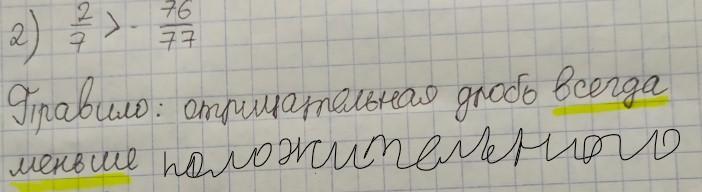 2) 2/7 > - 76/77
Правило: отрицательная дробь всегда
меньше положительного